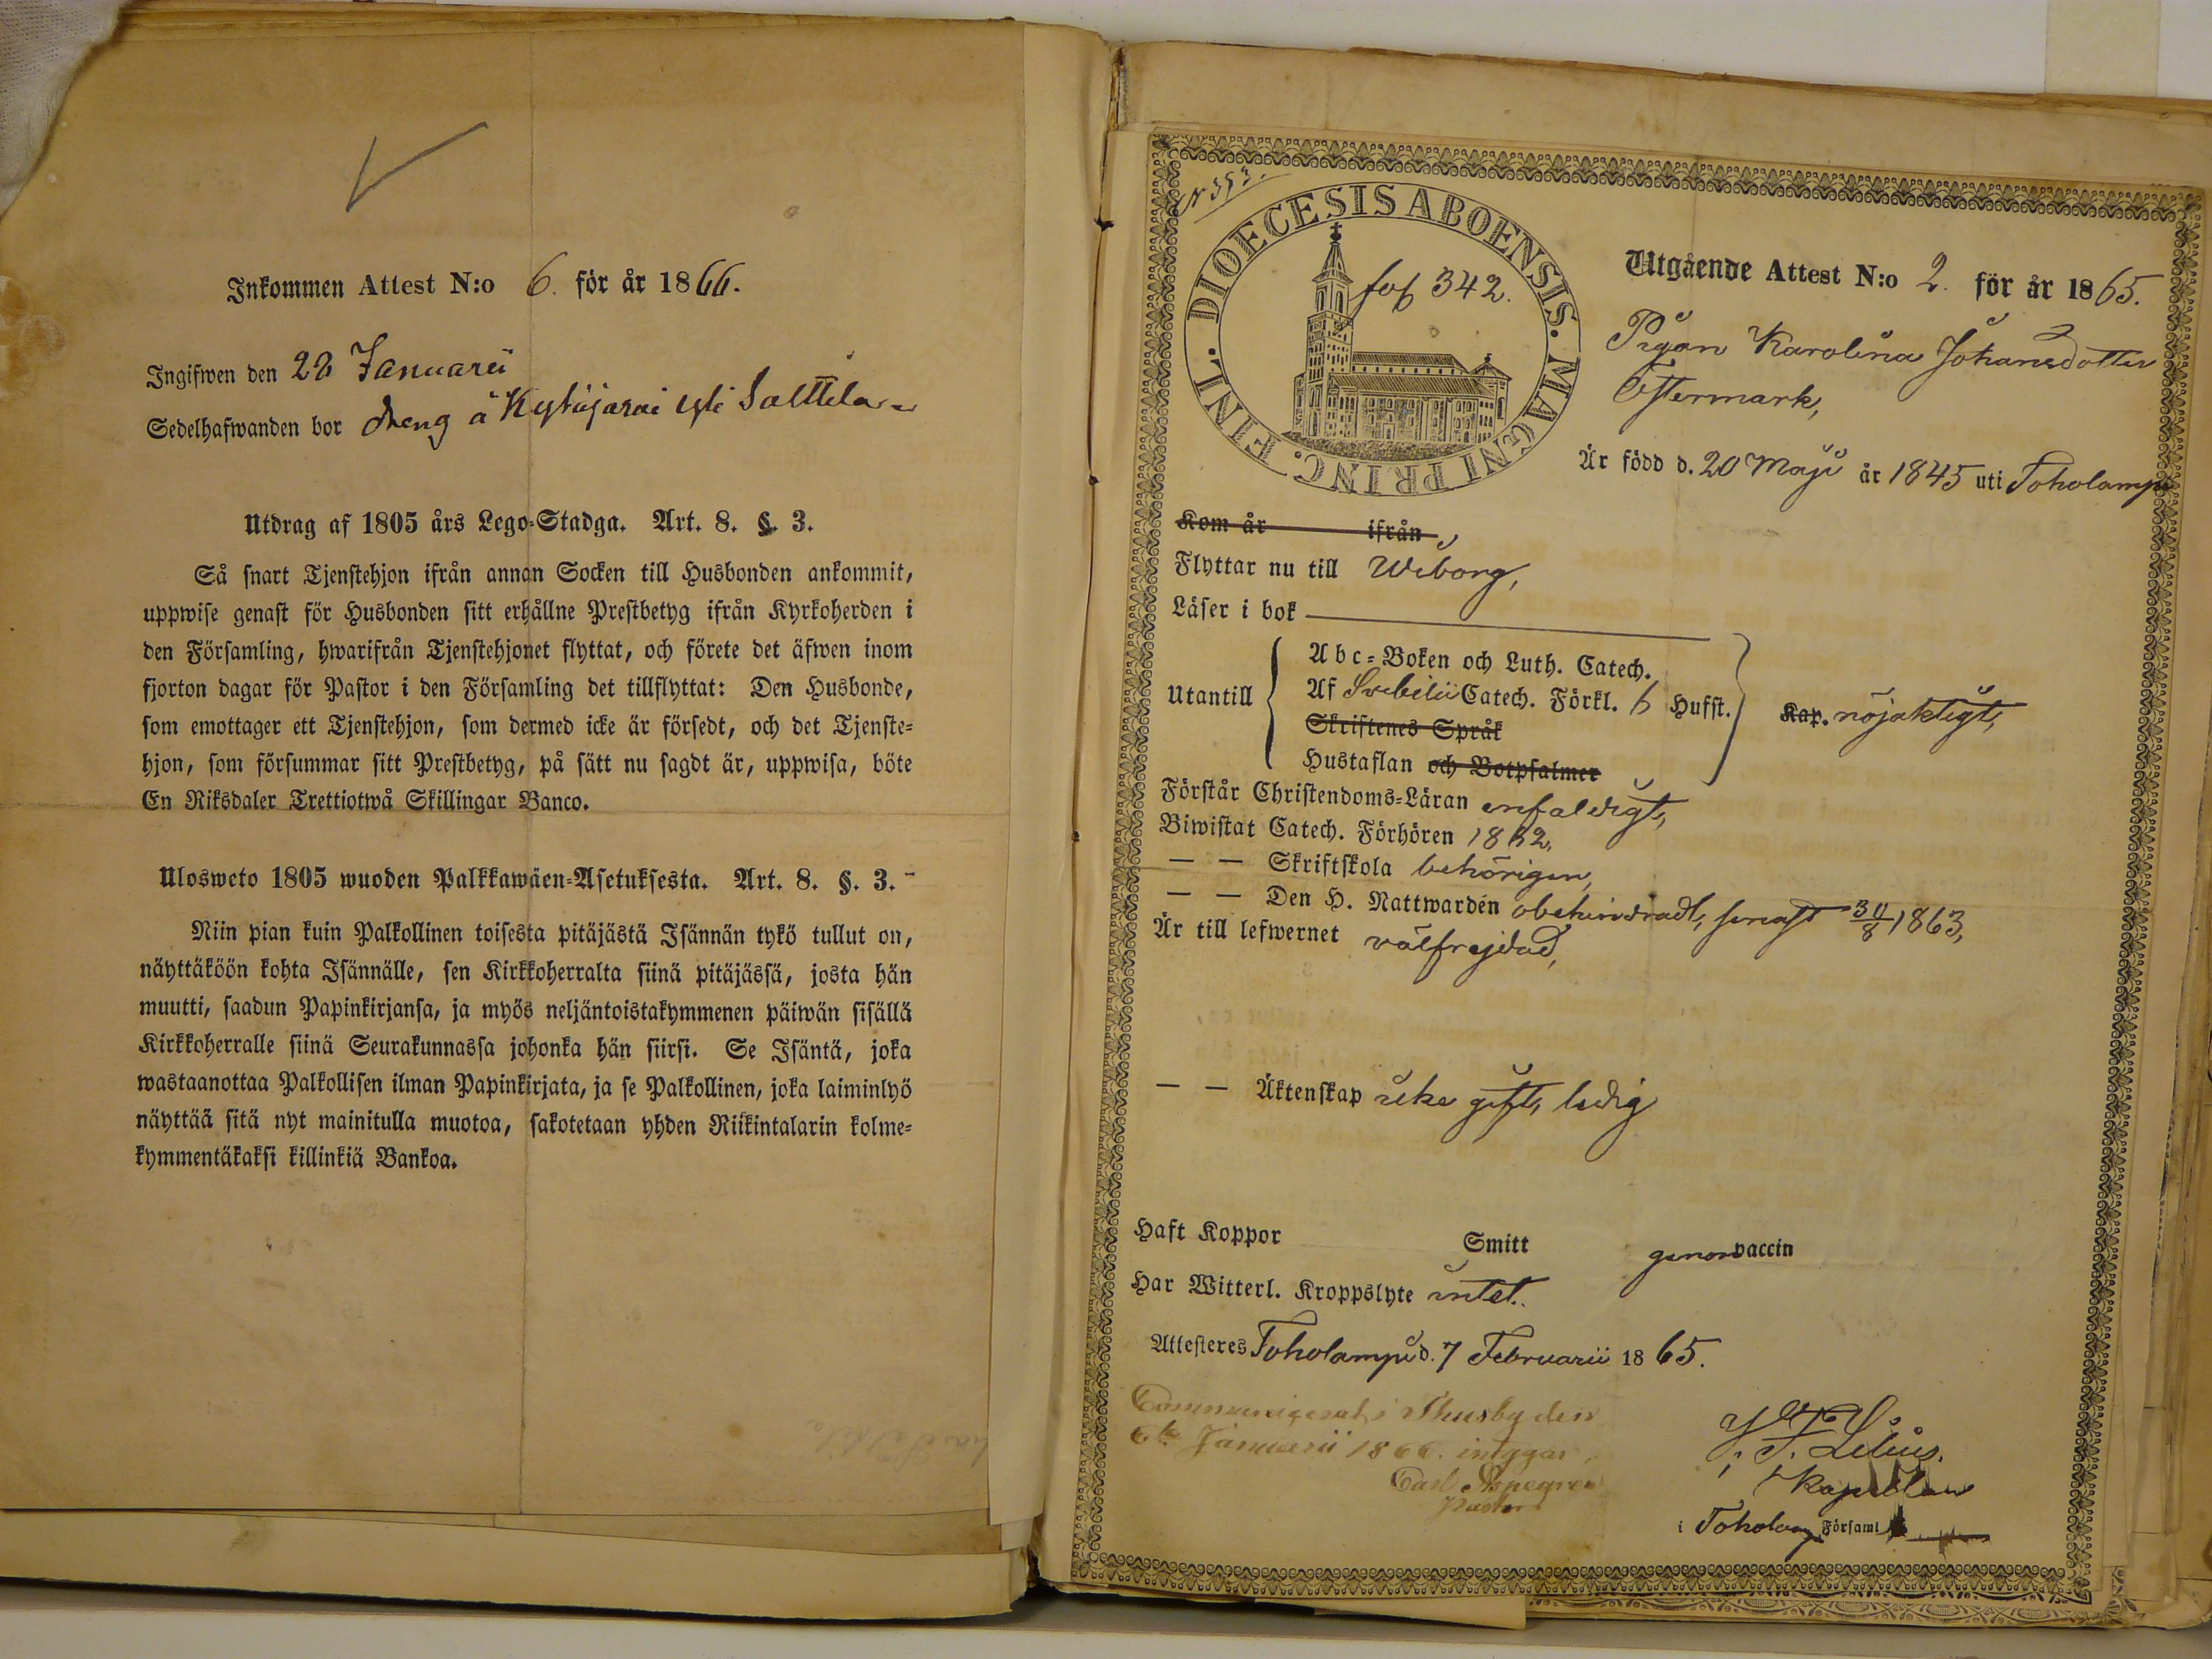 Inkommen Attest N:o 6. för år 1866.
Ingifwen den 22 Januarii
Sedelhafwanden bor dreng å
Utdrag af 1805 års Lego-Stadga. Art. 8. §. 3.
Så snart Tjenstehjon ifrån annan Socken till Husbonden ankommit,
uppwise genast för Husbonden sitt erhållne Prestbetyg ifrån Kyrkoherden i
den Församling, hwarifrån Tjenstehjonet flyttat, och förete det äfwen inom
fjorton dagar för Pastor i den Församling det tillflyttat: Den Husbonde,
som emottager ett Tjenstehjon, som dermed icke är försedt, och det Tjenste-
hjon, som försummar sitt Prestbetyg, på sätt nu sagdt är, uppwisa, böte
En Riksdaler Trettiotwå Skillingar Banco.
Ulosweto 1805 wuoden Palkkawäen-Asetuksesta. Art. 8. §. 3.
Niin pian kuin Palkollinen toisesta pitäjästä Isännän tykö tullut on,
näyttäköön kohta Isännälle, sen Kirkkoherralta siinä pitäjässä, josta hän
muutti, saadun Papinkirjansa, ja myös neljäntoistakymmenen päiwän sisällä
Kirkkoherralle siinä Seurakunnassa johonka hän siirsi. Se Isäntä, joka
wastaanottaa Palkollisen ilman Papinkirjata, ja se Palkollinen, joka laiminlyö
näyttää sitä nyt mainitulla muotoa, sakotetaan yhden Riikintalarin kolme-
kymmentäkaksi killinkiä Bankoa.
N 353.
DIOECESIS ABOENSIS. MAGNI PRINC. FINL.
fol 342.
Utgående Attest N:o 2. för år 1865.
Pigan Karolina Johansdotter
Östermark,
Är född d. 20 Maji år 1845 uti Toholampi
Kom år ifrån
Flyttar nu till Wiborg,
Läser i bok
Utantill
Abc-Boken och Luth. Catech.
Af Svebilii Catech. Förkl. 6 Hufst.
Skriftenes Språk
Hustaflan och Botpsalmer
Kap. nöjaktigt,
Förstår Christendoms-Läran enfaldigt,
Biwistat Catech. Förhören 1862,
— — Skriftskola behörigen,
— — Den H. Nattwarden obehindradt, senast 30/8 1863,
Är till lefwernet välfrejdad,
— — Äktenskap icke gift, ledig
Haft Koppor Smitt genom vaccin
Har Witterl. Kroppslyte intet.
Attesteres Toholampi d. 7 Februarii 1865.
Communicerat i Thusby den
6te Januarii 1866. intygar,
Carl Aspegren
Pastor
Kapellan
i Toholamp Församl